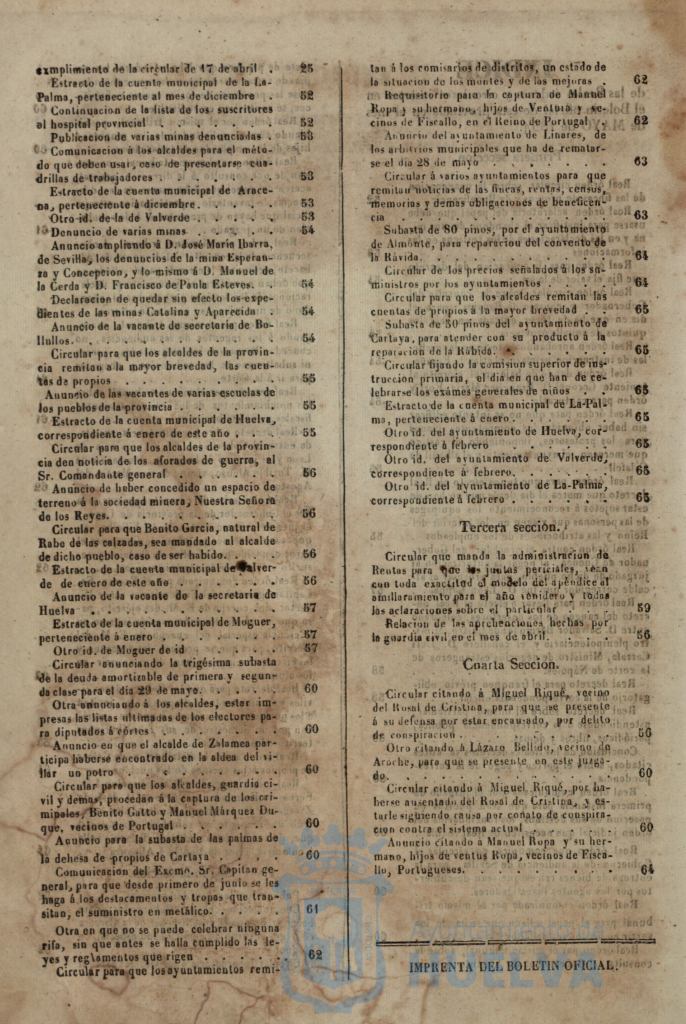 cumplimiento de la circular de 17 de abril . 25
Extracto de la cuenta municipal de La-
Palma, perteneciente al mes de diciembre . 52
Continuacion de la lista de los suscritores
al hospital provincial . . . . . . 52
Publicacion de varias minas denunciadas . 53
Comunicacion á los alcaldes para el méto-
do que deben usar, caso de presentarse cua-
drillas de trabajadores . . . . . . 53
Extracto de la cuenta municipal de Arace-
na, perteneciente á diciembre. . . . . 53
Otro id. de la de Valverde . . . . . 53
Denuncio de varias minas . . . . . 54
Anuncio ampliando á D. José Maria Ibarra,
de Sevilla, los denuncios de la mina Esperan-
za y Concepcion, y lo mismo á D. Manuel de
la Cerda y D. Francisco de Paula Esteves. . 54
Declaracion de quedar sin efecto los expe-
dientes de las minas Catalina y Aparecida . 54
Anuncio de la vacante de secretaria de Bo-
llullos. . . . . . . . . . 54
Circular para que los alcaldes de la provin-
cia remitan á la mayor brevedad, las cuen-
tas de propios . . . . . . . . 55
Anuncio de las vacantes de varias escuelas de
los pueblos de la provincia . . . . . 55
Extracto de la cuenta municipal de Huelva,
correspondiente á enero de este año . . . 55
Circular para que los alcaldes de la provin-
cia den noticia de los aforados de guerra, al
Sr. Comandante general . . . . . . 56
Anuncio de haber concedido un espacio de
terreno á la sociedad minera, Nuestra Señora
de los Reyes. . . . . . . . . 56
Circular para que Benito Garcia, natural de
Rabe de las calzadas, sea mandado al alcalde
de dicho pueblo, caso de ser habido. . . . 56
Extracto de la cuenta municipal de Valver-
de de enero de este año . . . . . . 56
Anuncio de la vacante de la secretaria de
Huelva . . . . . . . . . . 57
Extracto de la cuenta municipal de Moguer,
perteneciente á enero . . . . . . 57
Otro id. de Moguer de id . . . . . 57
Circular anunciando la trigésima subasta
de la deuda amortizable de primera y segun-
da clase para el dia 29 de mayo. . . . . 60
Otra anunciando á los alcaldes, estar im-
presas las listas ultimadas de los electores pa-
ra diputados á córtes . . . . . . 60
Anuncio en que el alcalde de Zalamea par-
ticipa haberse encontrado en la aldea del vi-
llar un potro . . . . . . . . 60
Circular para que los alcaldes, guardia ci-
vil y demas, procedan á la captura de los cri-
minales, Benito Gatto y Manuel Márquez Du-
que, vecinos de Portugal . . . . . 60
Anuncio para la subasta de las palmas de
la dehesa de propios de Cartaya . . . . 60
Comunicacion del Excmo. Sr. Capitan ge-
neral, para que desde primero de junio se les
haga á los destacamentos y tropas que tran-
sitan, el suministro en metálico. . . . . 61
Otra en que no se puede celebrar ninguna
rifa, sin que antes se halla cumplido las le-
yes y reglamentos que rigen . . . . . 62
Circular para que los ayuntamientos remi-
tan á los comisarios de distritos, un estado de
la situacion de los montes y de las mejoras . 62
Requisitorio para la captura de Manuel
Ropa y su hermano, hijos de Ventura y ve-
cinos de Fiscallo, en el Reino de Portugal . 62
Anuncio del ayuntamiento de Linares, de
los arbitrios municipales que ha de rematar-
se el dia 28 de mayo . . . . . . 63
Circular á varios ayuntamientos para que
remitan noticias de las fincas, rentas, censos,
memorias y demas obligaciones de beneficen-
cia . . . . . . . . . . 63
Subasta de 80 pinos, por el ayuntamiento
de Almonte, para reparacion del convento de
la Rávida. . . . . . . . . . 64
Circular de los precios señalados á los su-
ministros por los ayuntamientos . . . . 64
Circular para que los alcaldes remitan las
cuentas de propios á la mayor brevedad . . 65
Subasta de 80 pinos del ayuntamiento de
Cartaya, para atender con su producto á la
reparacion de la Rábida. . . . . . 65
Circular fijando la comision superior de ins-
truccion primaria, el dia en que han de ce-
lebrarse los exámes generales de niños . . 65
Extracto de la cuenta municipal de La-Pal-
ma, perteneciente á enero . . . . . 65
Otro id. del ayuntamiento de Huelva, cor-
respondiente á febrero . . . . . . 65
Otro id. del ayuntamiento de Valverde,
correspondiente á febrero. . . . . . 65
Otro id. del ayuntamiento de La-Palma,
correspondiente á febrero . . . . . 65
Tercera sección.
Circular que manda la administracion de
Rentas para que las juntas periciales, vean
con toda exactitud el modelo del apéndice al
amillaramiento para el año venidero y todas
las aclaraciones sobre el particular . . . 59
Relacion de las aprehenciones hechas por
la guardia civil en el mes de abril. . . . 56
Cuarta Seccion.
Circular citando á Miguel Riqué, vecino
del Rosal de Cristina, para que se presente
á su defensa por estar encausado, por delito
de conspiracion . . . . . . . 56
Otro citando á Lázaro Bellido, vecino de
Aroche, para que se presente en este juzga-
do. . . . . . . . . . . 60
Circular citando á Miguel Riqué, por ha-
berse ausentado del Rosal de Cristina, y es-
tarle siguiendo causa por conato de conspira-
cion contra el sistema actual . . . . . 60
Anuncio citando á Manuel Ropa y su her-
mano, hijos de ventus Ropa, vecinos de Fisca-
llo, Portugueses. . . . . . . . 64
IMPRENTA DEL BOLETIN OFICIAL.
Ayuntamiento de
HUELVA